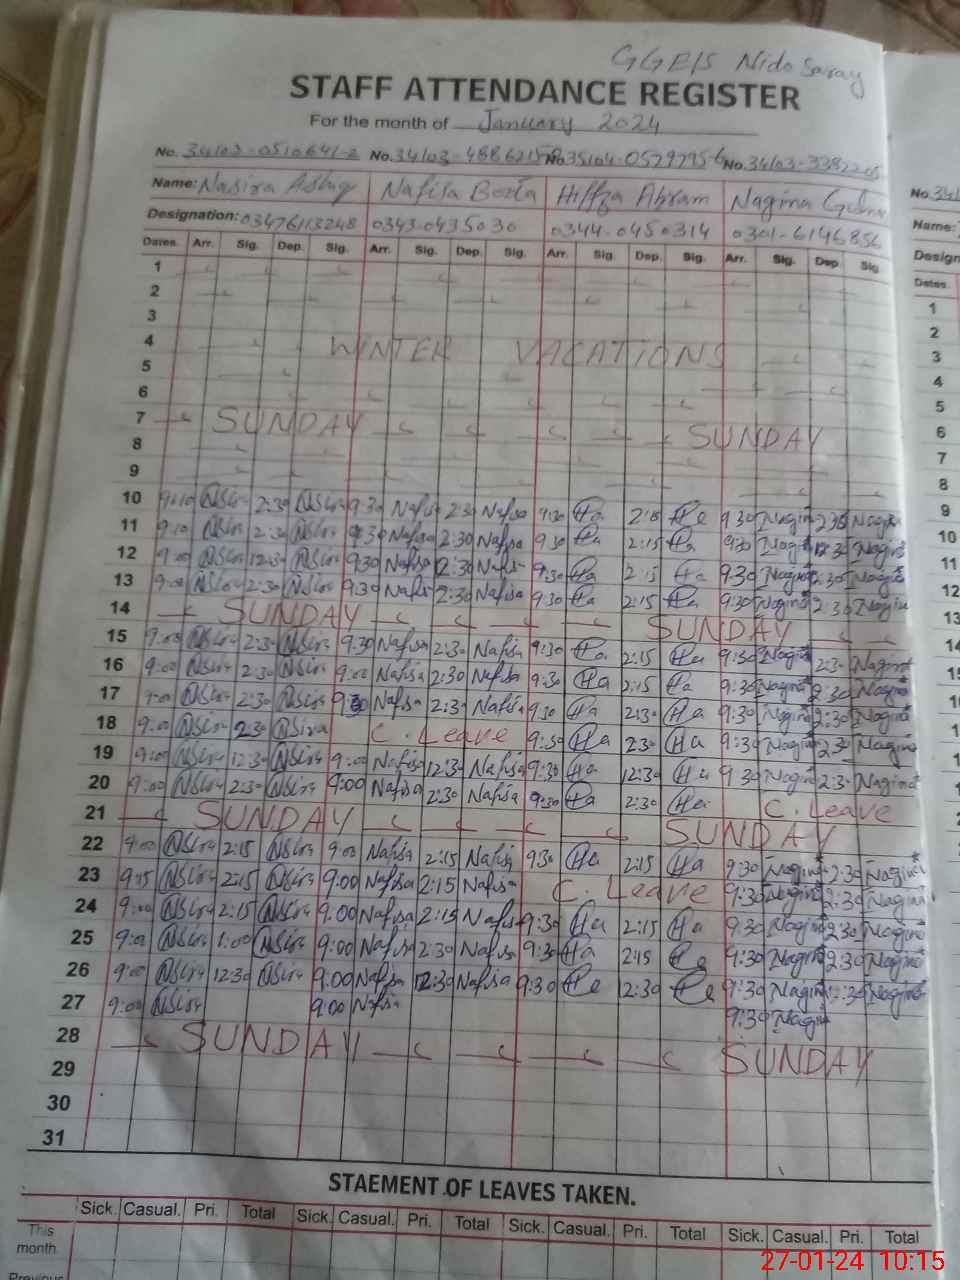 GGE/S Nido Saray
STAFF ATTENDANCE REGISTER
For the month of January 2024
No. 34103-0510641-2 No. 34103-4886215-8 No. 35104-0579795-6 No. 34103-3382205
Name: Nasira Ashiq Nafisa Boota Hiffza Akram Nagina
Designation: 03476113248 0343-0435030 0344-0450314 0301-6146856
Dates. Arr. Sig. Dep. Sig. Arr. Sig. Dep. Sig. Arr. Sig. Dep. Sig. Arr. Sig. Dep. Sig
1
2
3
4 WINTER VACATIONS
5
6
7 SUNDAY SUNDAY
8
9
10 9:10 2:30 9:30 Nafisa 2:30 Nafisa 9:30 Ha 2:15 9:30 Nagina 2:30 Nagina
11 9:10 2:30 9:30 Nafisa 2:30 Nafisa 9:30 Ha 2:15 Ha 9:30 12:30 Nagina
12 9:00 12:30 9:30 Nafisa 12:30 Nafisa 9:30 Ha 2:15 Ha 9:30 Nagina 2:30 Nagina
13 9:00 2:30 9:30 Nafisa 2:30 Nafisa 9:30 Ha 2:15 Ha 9:30 Nagina 2:30 Nagina
14 SUNDAY SUNDAY
15 9:00 2:30 9:30 Nafisa 2:30 Nafisa 9:30 Ha 2:15 Ha 9:30 Nagina 2:30 Nagina
16 9:00 2:30 9:00 Nafisa 2:30 Nafisa 9:30 Ha 2:15 Ha 9:30 Nagina 2:30 Nagina
17 9:00 2:30 9:30 Nafisa 2:30 Nafisa 9:30 Ha 2:30 Ha 9:30 Nagina 2:30 Nagina
18 9:00 2:30 C. Leave 9:30 Ha 2:30 Ha 9:30 Nagina 2:30 Nagina
19 9:00 12:30 9:00 Nafisa 12:30 Nafisa 9:30 Ha 12:30 Ha 9:30 Nagina 12:30 Nagina
20 9:00 2:30 9:00 Nafisa 2:30 Nafisa 9:30 Ha 2:30 Ha C. Leave
21 SUNDAY SUNDAY
22 9:00 2:15 9:00 Nafisa 2:15 Nafisa 9:30 Ha 2:15 Ha 9:30 Nagina 2:30 Nagina
23 9:15 2:15 9:00 Nafisa 2:15 Nafisa C. Leave 9:30 Nagina 2:30 Nagina
24 9:00 2:15 9:00 Nafisa 2:15 Nafisa 9:30 Ha 2:15 Ha 9:30 Nagina 2:30 Nagina
25 9:00 1:00 9:00 Nafisa 2:30 Nafisa 9:30 Ha 2:15 9:30 Nagina 2:30 Nagina
26 9:00 12:30 9:00 Nafisa 12:30 Nafisa 9:30 12:30 9:30 Nagina 12:30 Nagina
27 9:00 9:00 Nafisa 9:30 Nagina
28 SUNDAY SUNDAY
29
30
31
STAEMENT OF LEAVES TAKEN.
Sick. Casual. Pri. Total Sick. Casual. Pri. Total Sick. Casual. Pri. Total Sick. Casual. Pri. Total
This
month.
Previous
No. 341
Name:
Design
Dates.
1
2
3
4
5
6
7
8
9
10
11
12
13
14
27-01-24 10:15